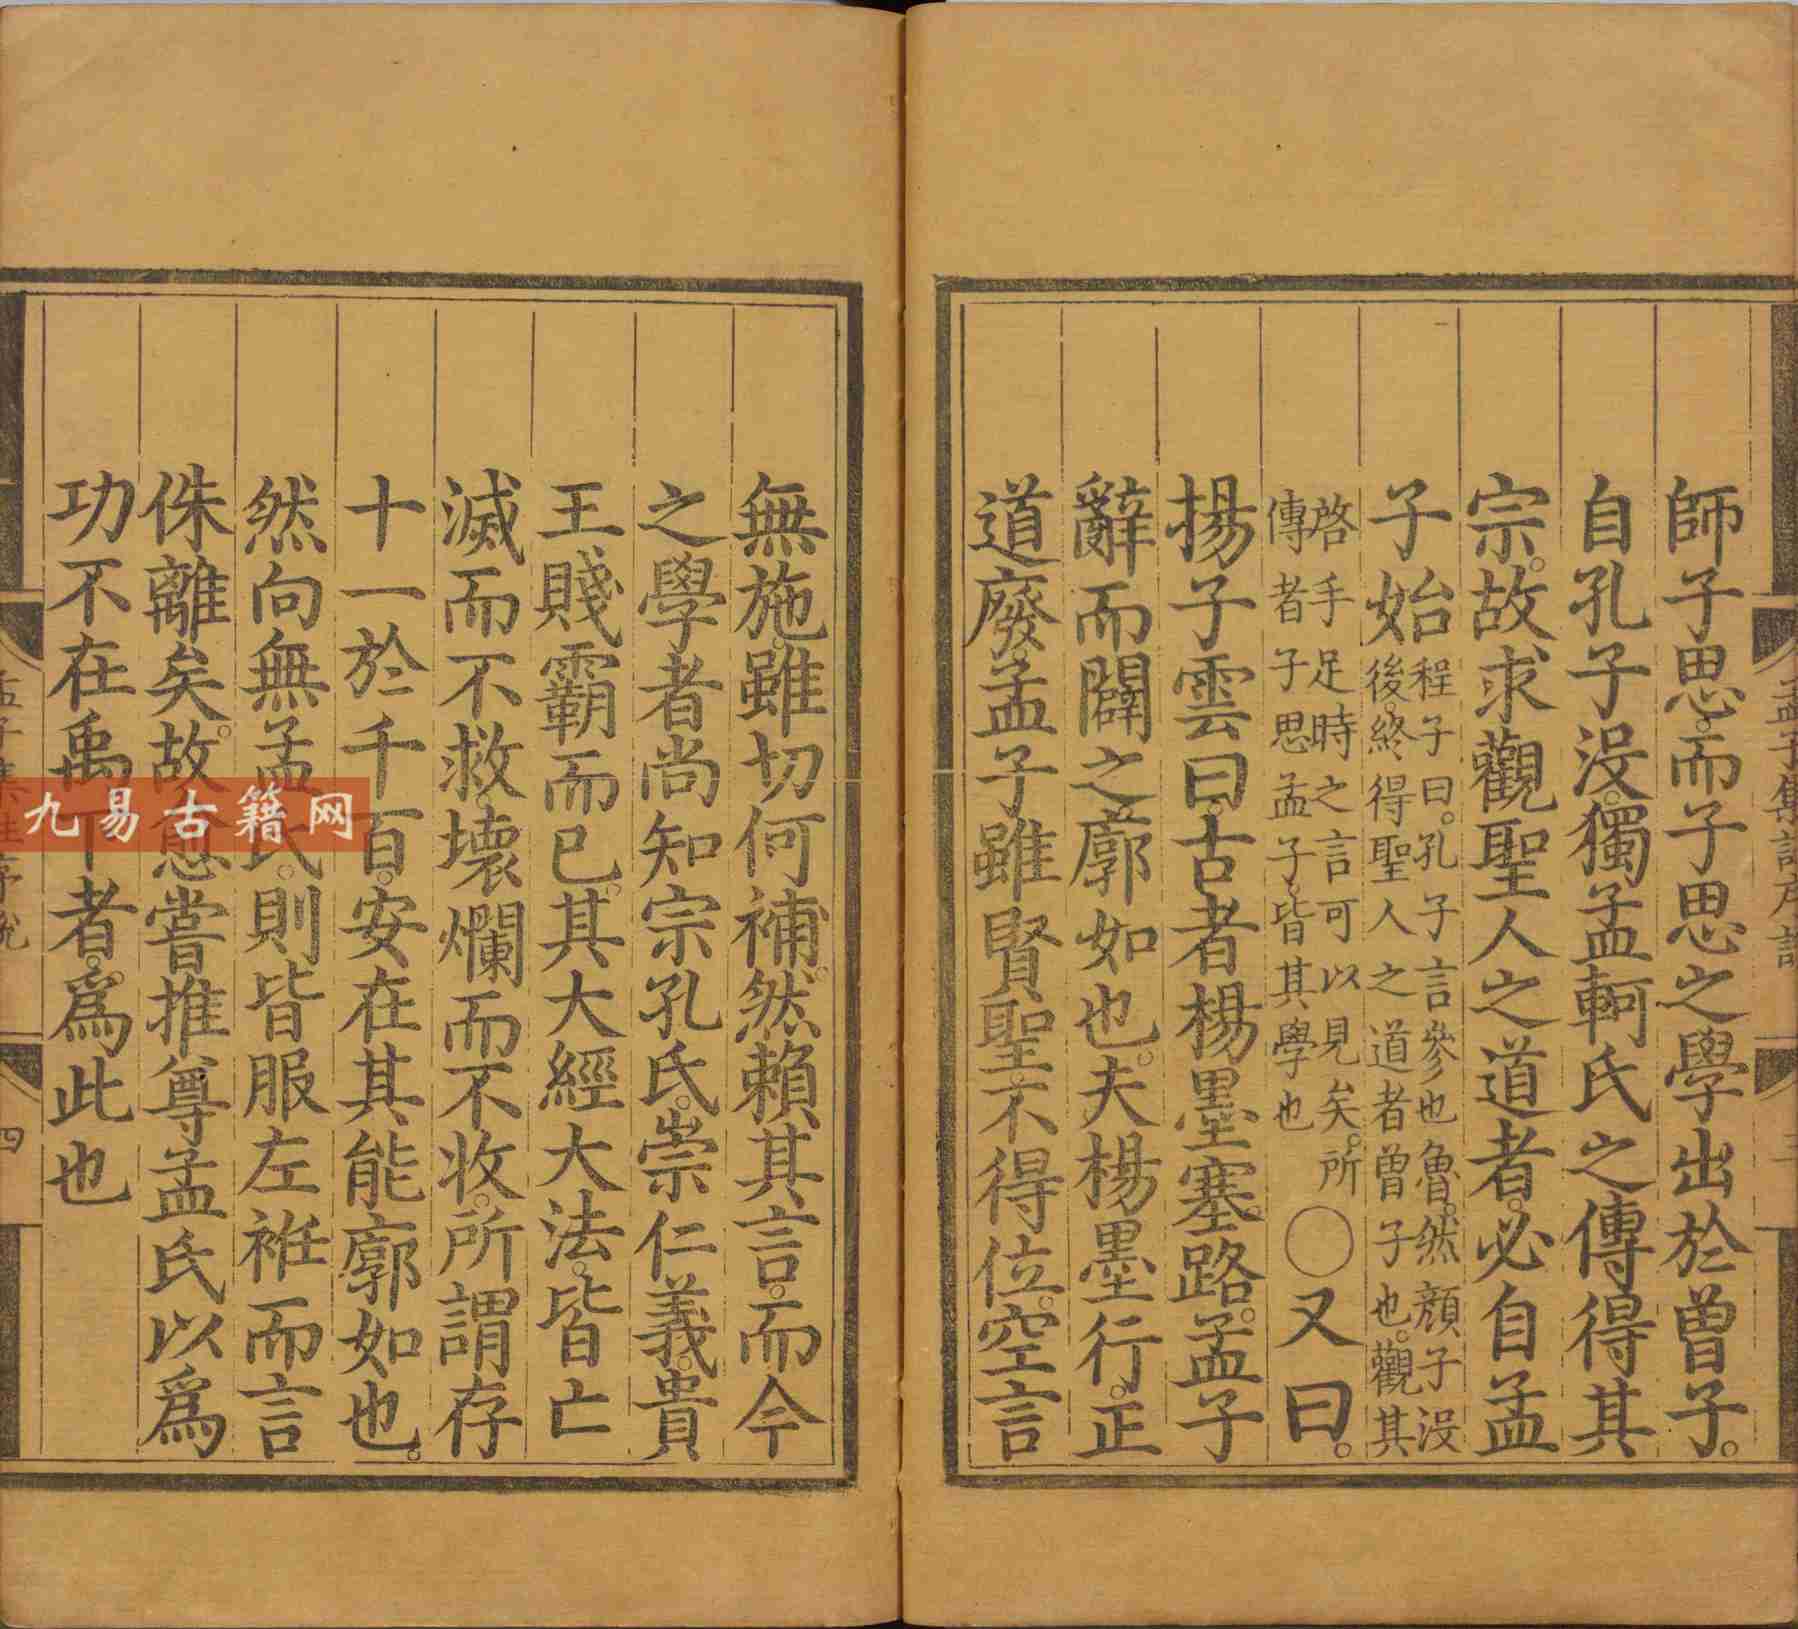 師子思。而子思之學出於曾子。
自孔子没。獨孟軻氏之傳得其
宗。故求觀聖人之道者。必自孟
子始程子曰。孔子言參也魯。然顔子没
後。終得聖人之道者曾子也。觀其
啓手足時之言可以見矣。所
傳者子思孟子。皆其學也〇又曰。
揚子雲曰。古者楊墨塞路。孟子
辭而闢之。廓如也。夫楊墨行。正
道廢。孟子雖賢聖。不得位。空言
無施。雖切何補。然賴其言。而今
之學者尚知宗孔氏。崇仁義。貴
王賤霸而已。其大經大法。皆亡
滅而不救。壞爛而不收。所謂存
十一於千百。安在其能廓如也。
然向無孟氏。則皆服左袵而言
侏離矣。故愈嘗推尊孟氏以爲
功不在禹下者。爲此也
孟子集註序說
四
九易古籍网